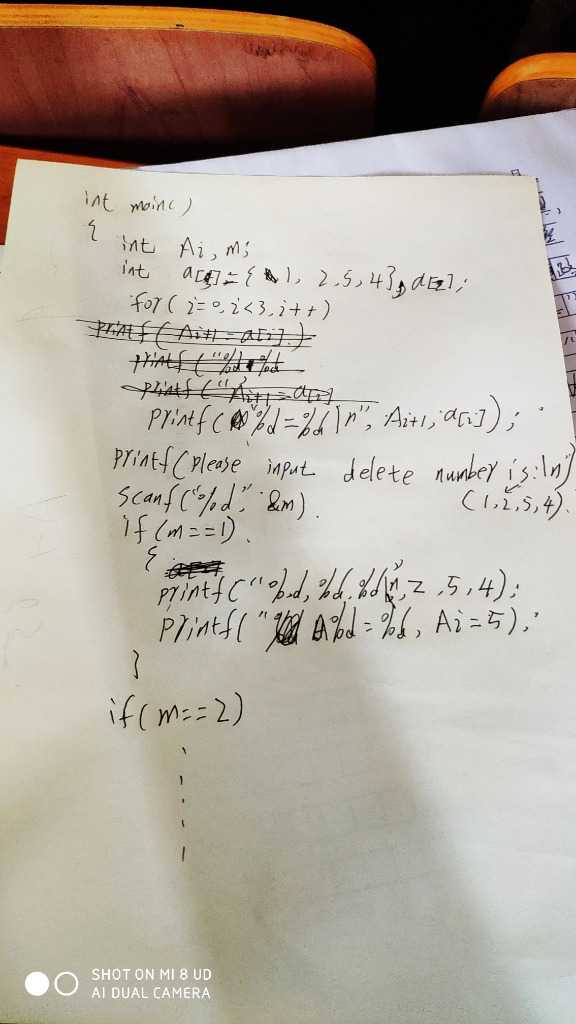 int main()
{
int Ai, m;
int a[]={1, 2,5,4}, a[2];
for( i=0,i<3,i++)
printf( Ai+1=a[i].)
printf("%d %d
printf(" Ai+1=a[i]
printf("%d=%d\n", Ai+1, a[i]);
printf(please input delete number is:\n")
scanf("%d," &m). (1,2,5,4).
if(m==1).
{
printf("%d,%d,%d\n",2,5,4);
printf(" A%d=%d, Ai=5);
}
if(m==2)
SHOT ON MI 8 UD
AI DUAL CAMERA